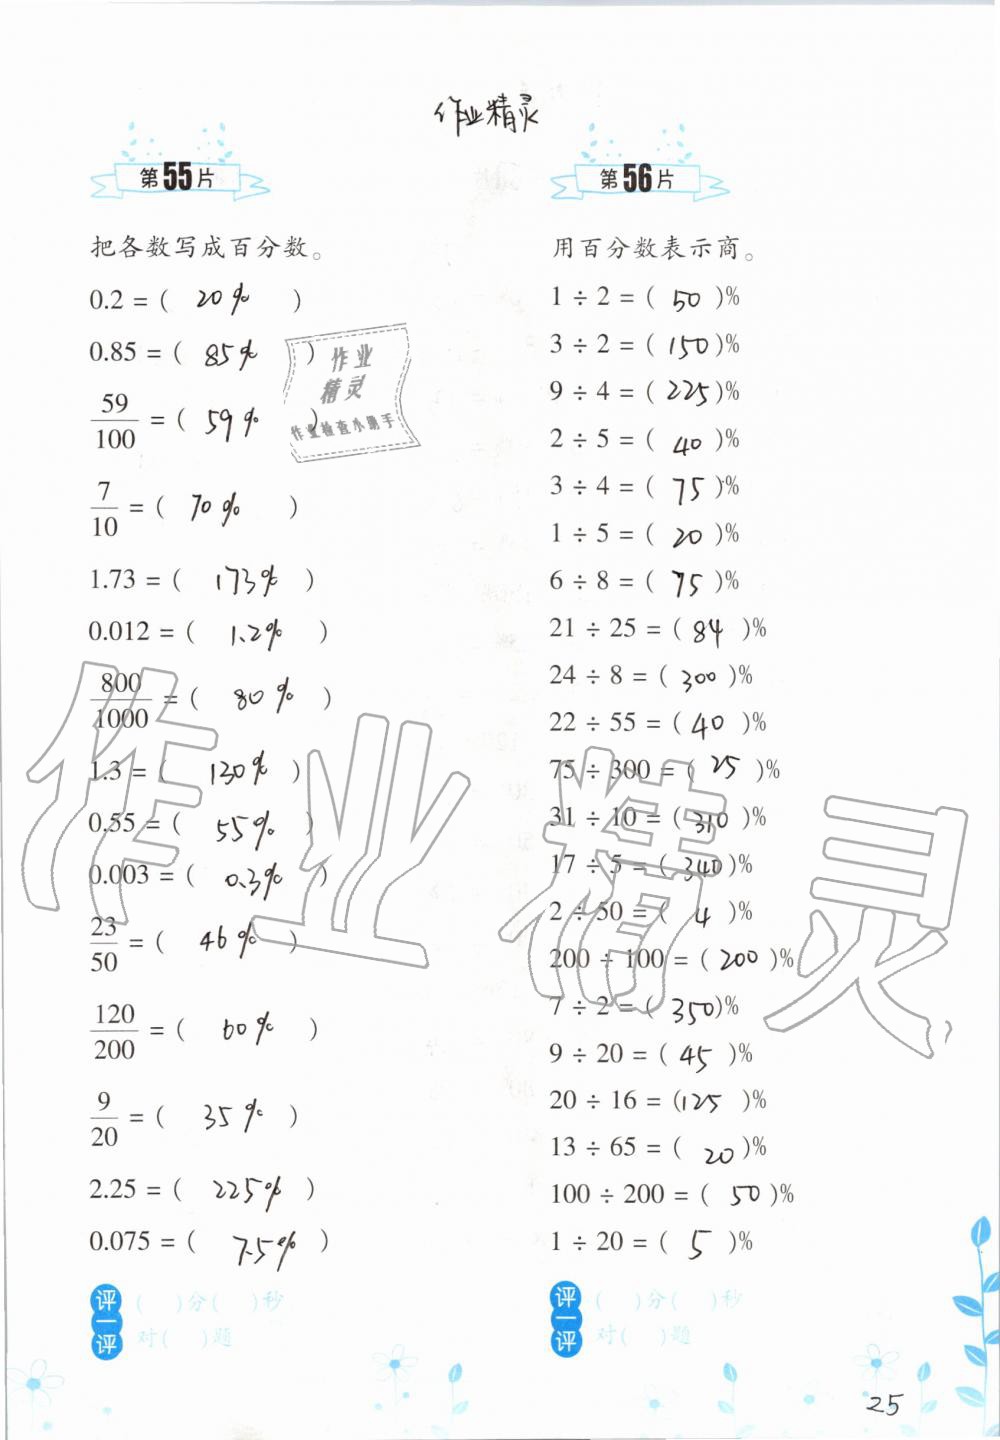 作业精灵
第55片
把各数写成百分数。
0.2 = ( 20% )
0.85 = ( 85% )
59/100 = ( 59% )
7/10 = ( 70% )
1.73 = ( 173% )
0.012 = ( 1.2% )
800/1000 = ( 80% )
1.3 = ( 130% )
0.55 = ( 55% )
0.003 = ( 0.3% )
23/50 = ( 46% )
120/200 = ( 60% )
9/20 = ( 35% )
2.25 = ( 225% )
0.075 = ( 7.5% )
评一评
( )分( )秒
对( )题
作业
精灵
作业检查小助手
第56片
用百分数表示商。
1 ÷ 2 = ( 50 )%
3 ÷ 2 = ( 150 )%
9 ÷ 4 = ( 225 )%
2 ÷ 5 = ( 40 )%
3 ÷ 4 = ( 75 )%
1 ÷ 5 = ( 20 )%
6 ÷ 8 = ( 75 )%
21 ÷ 25 = ( 84 )%
24 ÷ 8 = ( 300 )%
22 ÷ 55 = ( 40 )%
75 ÷ 300 = ( 25 )%
31 ÷ 10 = ( 310 )%
17 ÷ 5 = ( 340 )%
2 ÷ 50 = ( 4 )%
200 ÷ 100 = ( 200 )%
7 ÷ 2 = ( 350 )%
9 ÷ 20 = ( 45 )%
20 ÷ 16 = ( 125 )%
13 ÷ 65 = ( 20 )%
100 ÷ 200 = ( 50 )%
1 ÷ 20 = ( 5 )%
评一评
( )分( )秒
对( )题
作业精灵
25